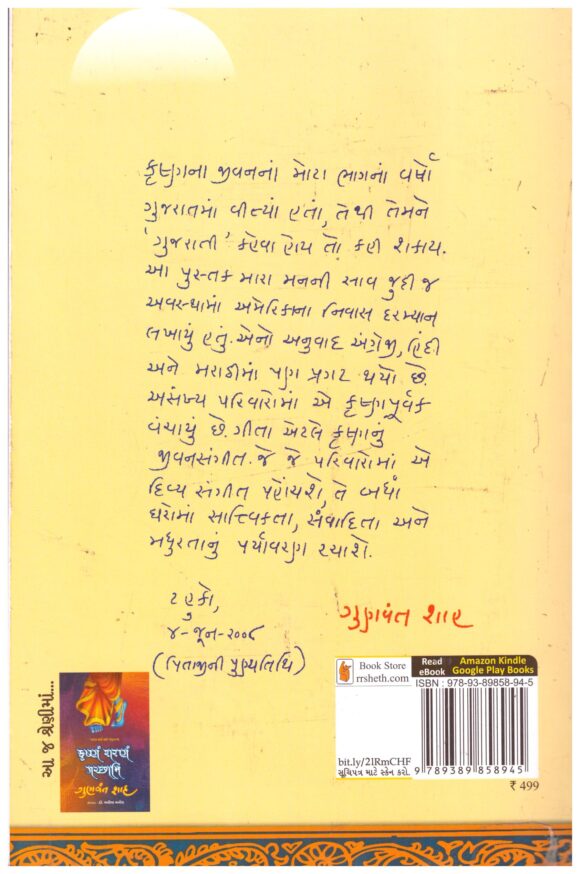 કૃષ્ણના જીવનનાં મોટા ભાગનાં વર્ષો
ગુજરાતમાં વીત્યાં હતાં, તેથી તેમને
'ગુજરાતી' કહેવા હોય તો કહી શકાય.
આ પુસ્તક મારા મનની સાવ જુદી જ
અવસ્થામાં અમેરિકાના નિવાસ દરમ્યાન
લખાયું હતું. એનો અનુવાદ અંગ્રેજી, હિંદી
અને મરાઠીમાં પણ પ્રગટ થયો છે.
અસંખ્ય પરિવારોમાં એ કૃષ્ણપૂર્વક
વંચાયું છે. ગીતા એટલે કૃષ્ણનું
જીવનસંગીત. જે જે પરિવારોમાં એ
દિવ્ય સંગીત પહોંચશે, તે બધાં
ઘરોમાં સાત્ત્વિકતા, સંવાદિતા અને
મધુરતાનું પર્યાવરણ રચાશે.
ટહુકો,
૪-જૂન-૨૦૦૮
(પિતાજીની પુણ્યતિથિ)
ગુણવંત શાહ
આ જ શ્રેણીમાં...
કૃષ્ણં શરણં
ગચ્છામિ
ગુણવંત શાહ
Book Store
rrsheth.com
Read
eBook
Amazon Kindle
Google Play Books
ISBN : 978-93-89858-94-5
bit.ly/2lRmCHF
સૂચિપત્ર માટે સ્કેન કરો.
9 789389 858945
₹ 499